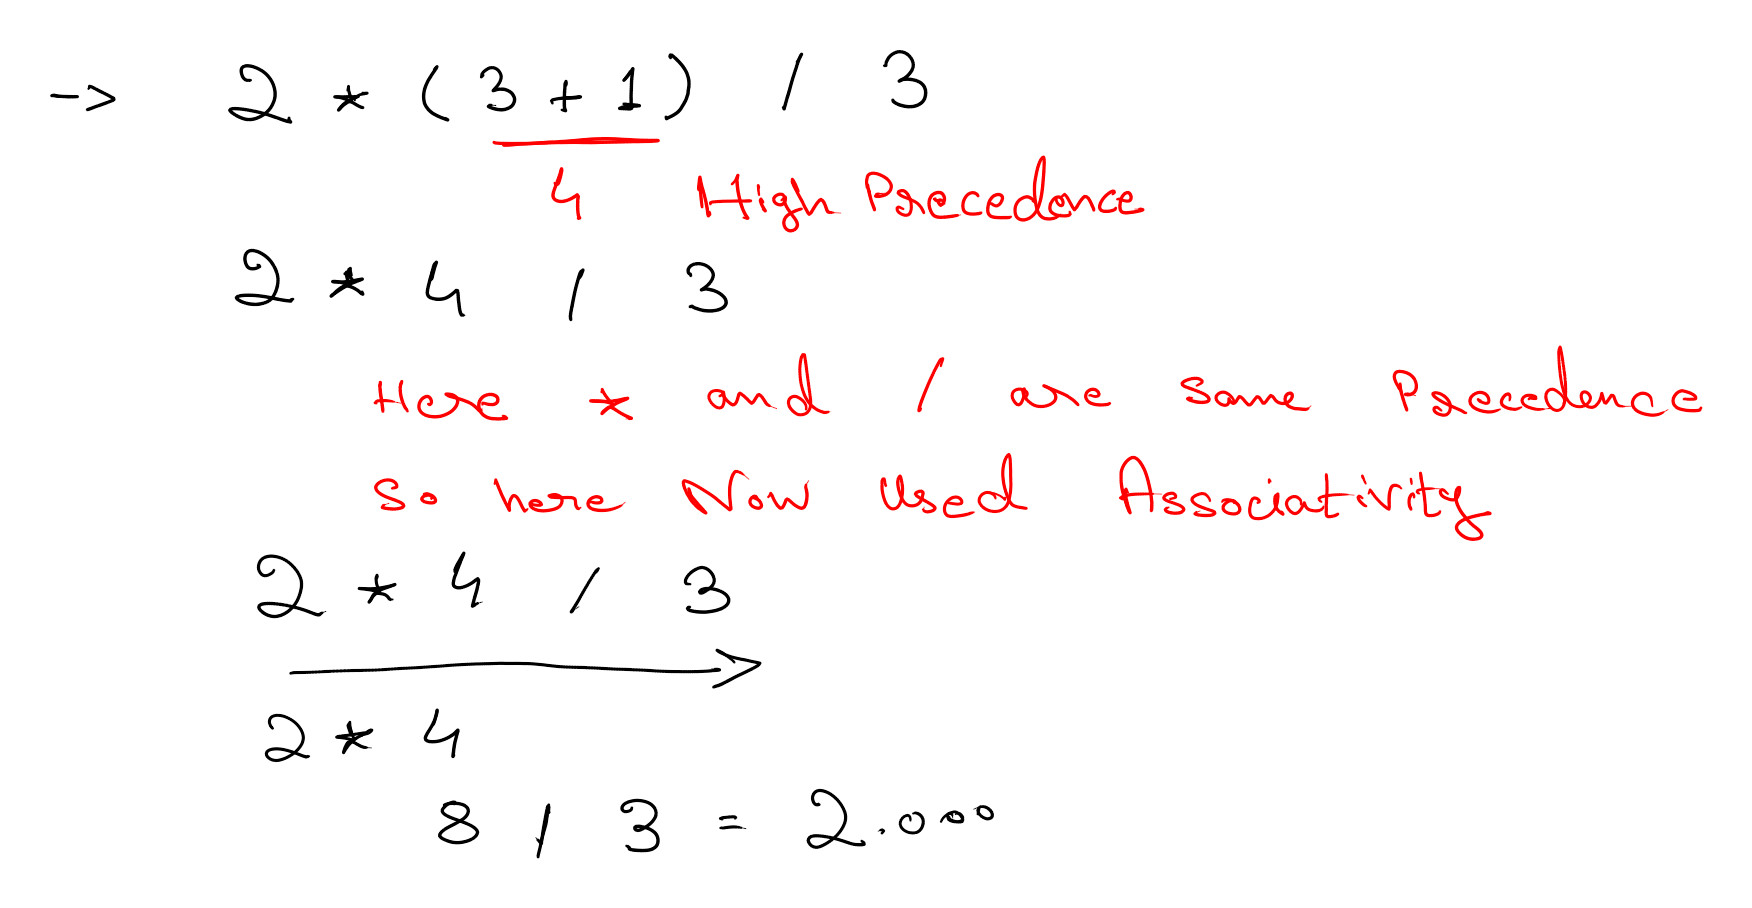 -> 2 * (3 + 1) / 3
4 High Precedence
2 * 4 / 3
Here * and / are same Precedence
So here Now Used Associativity
2 * 4 / 3
2 * 4
8 / 3 = 2.000